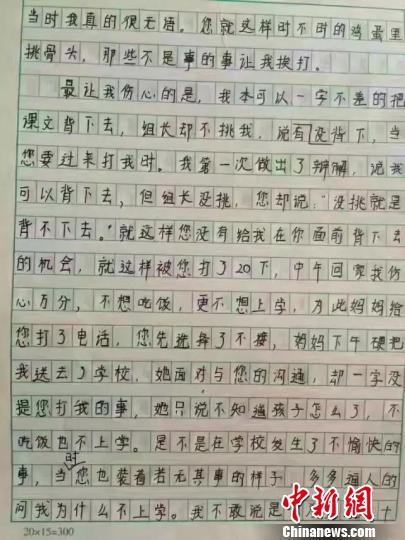 当时我真的很无语。您就这样时不时的鸡蛋里
挑骨头，那些不是事的事让我挨打。
最让我伤心的是，我本可以一字不差的把
课文背下去，组长却不挑我，说有没背下，当
您要过来打我时。我第一次做出了辩解，说我
可以背下去，但组长没挑，您却说："没挑就是
背不下去。"就这样您没有给我在你面前背下去
的机会，就这样被您打了20下，中午回家我伤
心万分，不想吃饭，更不想上学，为此妈妈给
您打了电话，您先选择了不接，妈妈下午硬把
我送去了学校，她面对与您的沟通，却一字没
提您打我的事，她只说不知道孩子怎么了，不
吃饭也不上学。是不是在学校发生了不愉快的
事，当时您也装着若无其事的样子，多多逼人的
问我为什么不上学。我不敢说是
十
20×15=300
中新网
Chinanews.com